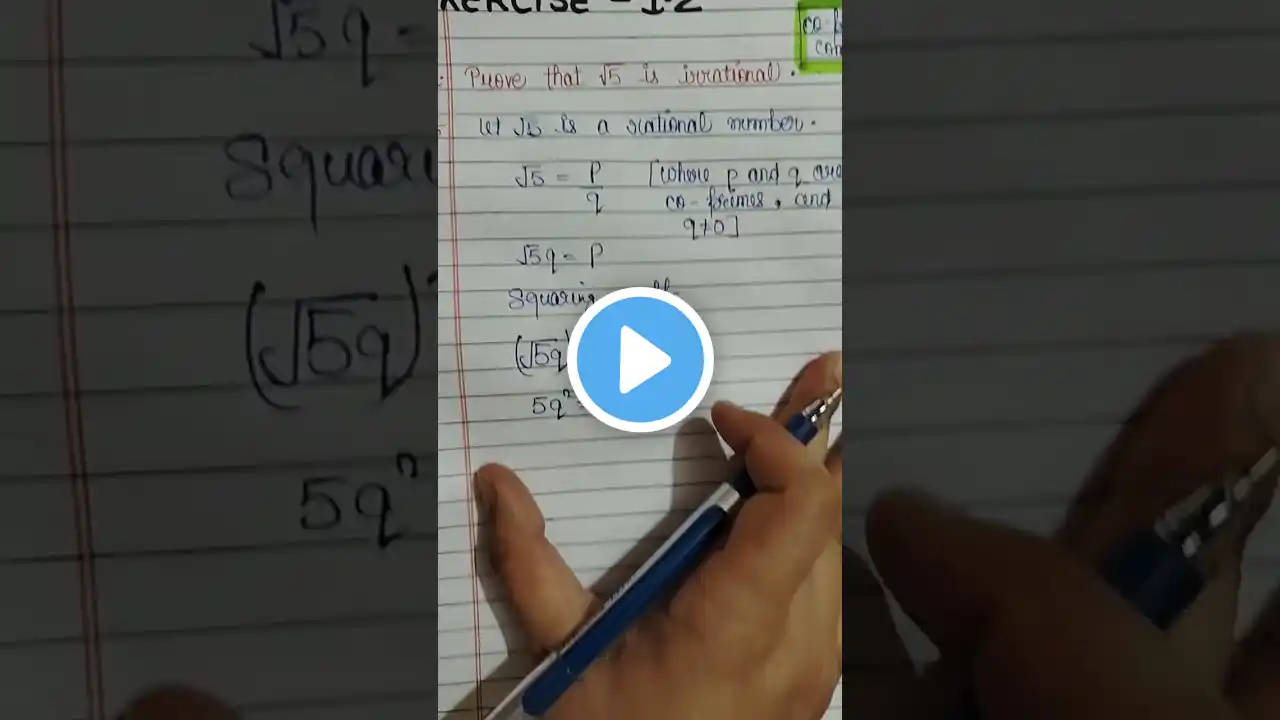 EXERCISE - 1.2
Prove that √5 is irrational.
Let √5 is a rational number.
√5 = p/q [where p and q are
co-primes, and
q≠0]
√5q = p
Squaring
(√5q)
5q² =